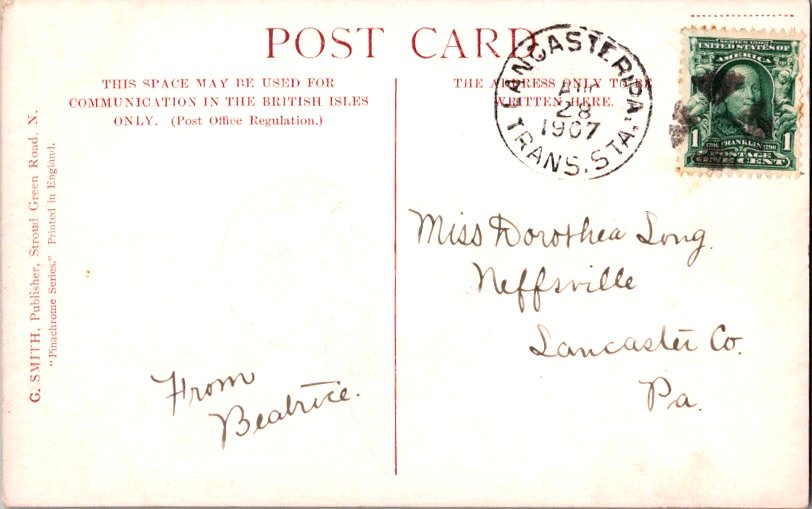 POST CARD
THIS SPACE MAY BE USED FOR
COMMUNICATION IN THE BRITISH ISLES
ONLY. (Post Office Regulation.)
THE ADDRESS ONLY TO BE
WRITTEN HERE.
LANCASTER, PA.
AUG
28
1907
TRANS. STA.
SERIES 1902
UNITED STATES OF
AMERICA
1706 FRANKLIN 1790
1 POSTAGE 1
ONE CENT
G. SMITH, Publisher, Stroud Green Road, N.
"Pinachrome Series." Printed in England.
Miss Dorothea Long.
Neffsville
Lancaster Co.
Pa.
From
Beatrice.